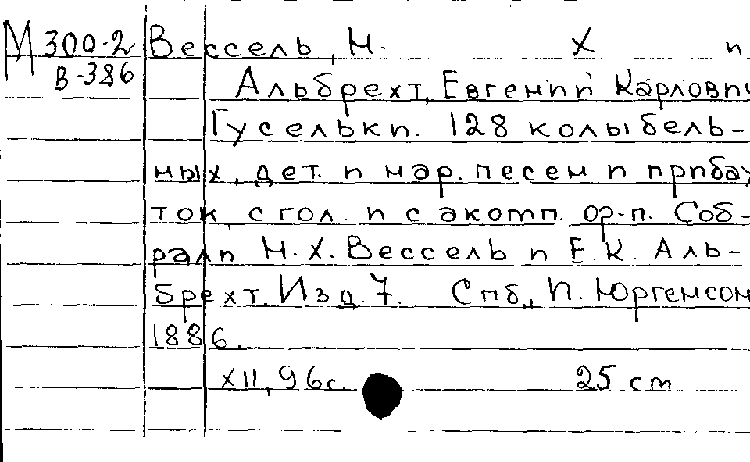 М 300-2 Вессель, Н. Х и
В-386
Альбрехт, Евгений Карлович
Гусельки. 128 колыбель-
ных, дет. и нар. песен и прибау
ток, с гол. и с акомп. ф-п. Соб-
рали Н. Х. Вессель и Е. К. Аль-
брехт. Изд. 7. Спб., П. Юргенсон
1886.
XII, 96 с. 25 см